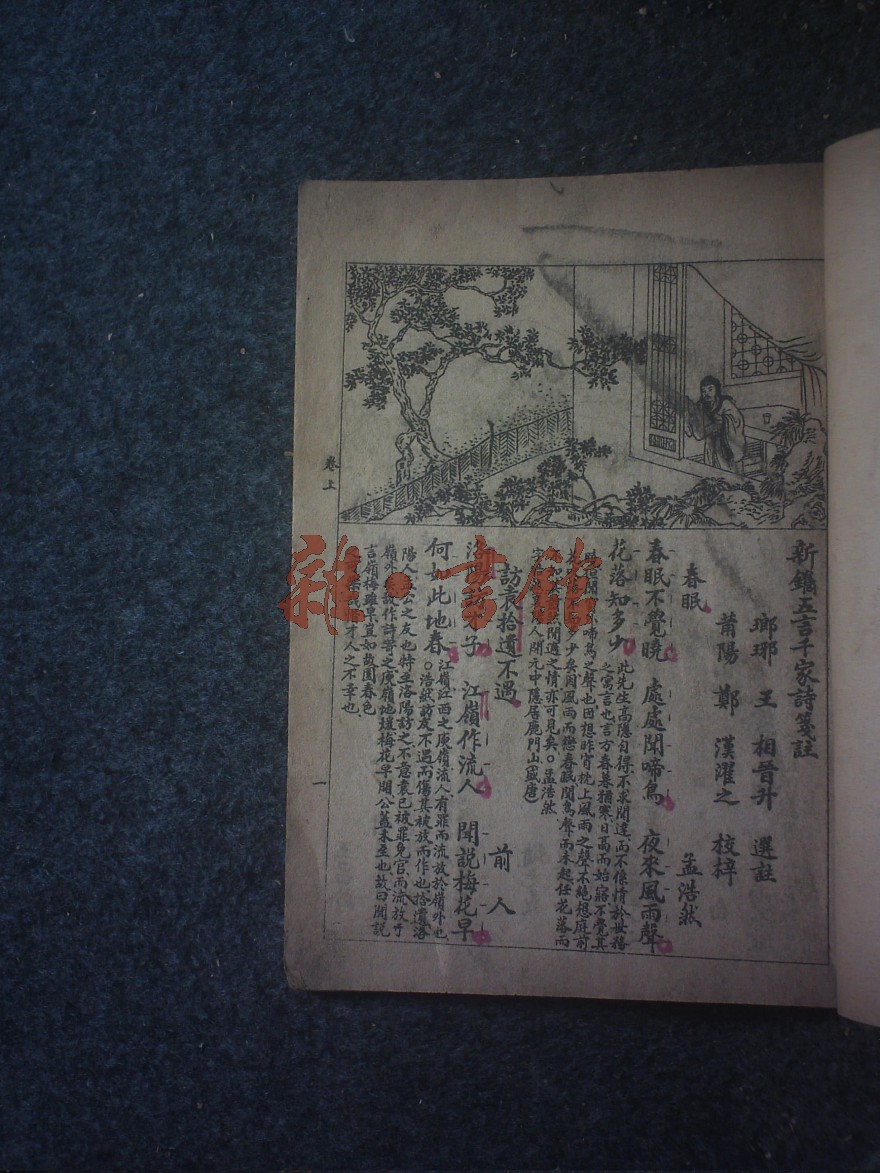 新鐫五言千家詩箋註
瑯琊 王 相晉升 選註
莆陽 鄭 漢濯之 校梓
春眠 孟浩然
春眠不覺曉 處處聞啼鳥 夜來風雨聲
花落知多少
此先生高隱自得、不求聞達、而不係情於世務
之寓言也、言方春暮猶寒、日高而始寤、不覺其
啼鳥之聲也、因想昨宵枕上風雨之聲不絕、想庭前
少矣、因風雨而戀春眠、聞鳥聲而未起、任花落而
閒適之情亦可見矣。○孟浩然
人、開元中隱居鹿門山、(盛唐)
訪袁拾遺不遇 前人
子 江嶺作流人 聞說梅花早
何如此地春
江嶺、江西之庾嶺、流人、有罪而流放於嶺外也、
○浩然訪友不遇、而傷其被放而作也、拾遺洛
陽人、公之友也、特至洛陽訪之、不意袁已被罪免官、而流放于
嶺外、故作詩寄之、庾嶺地煖、梅花早開、公蓋未至也、故曰聞說
言嶺梅雖早、豈如故園春色
才人之不幸也、
卷上
一
雜·書館